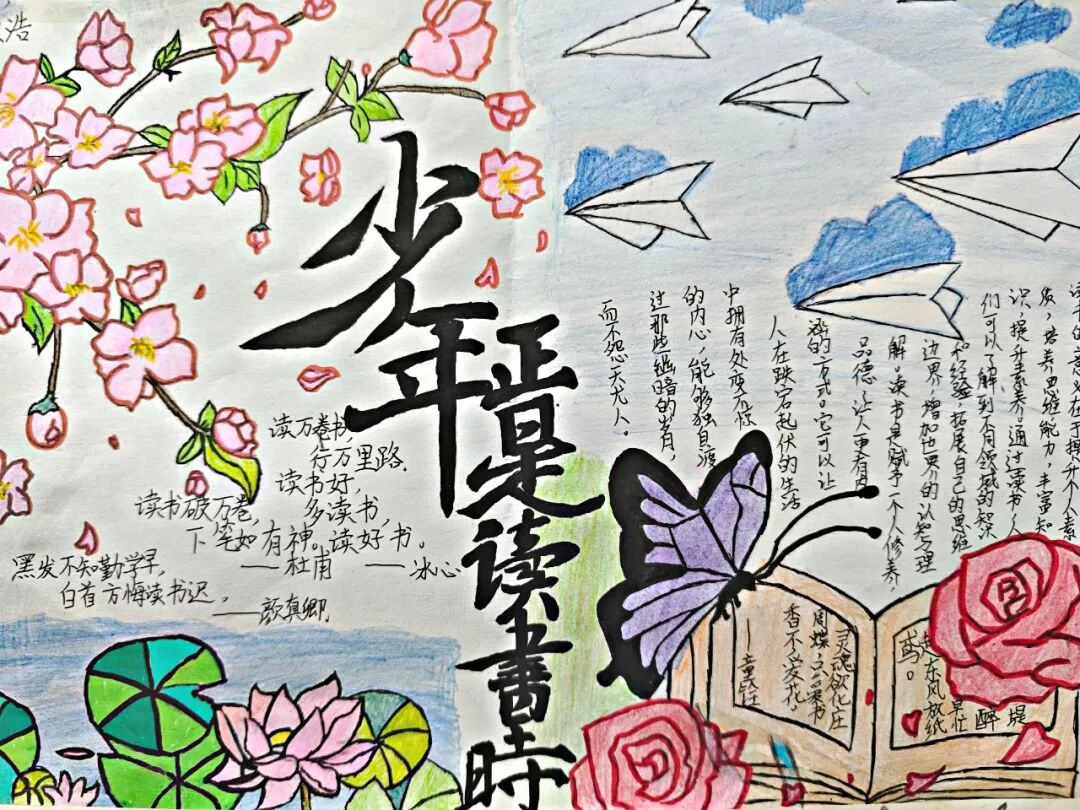 浩
少年正是读书時
读万卷书,
行万里路.
读书好,
多读书,
读好书。
——冰心
读书破万卷,
下笔如有神。
——杜甫
黑发不知勤学早,
白首方悔读书迟。
——颜真卿.
的意义在于提升个人素
养,培养思维能力,丰富知
识,提升素养。通过读书人
们可以了解到不同领域的知识
和经验拓展自己的思维
边界增加世界的认知与理
解。读书是赋予一个人修养,
品德,让人更有内
涵的一方式,它可以让
人在跌宕起伏的生活
中拥有处变不惊
的内心,能够独自渡
过那些幽暗的岁月,
而不怨天尤人。
灵魂欲化庄
周蝶只爱书
香不爱花,
——童铨
堤
醉
早忙
东风放纸
鸢。